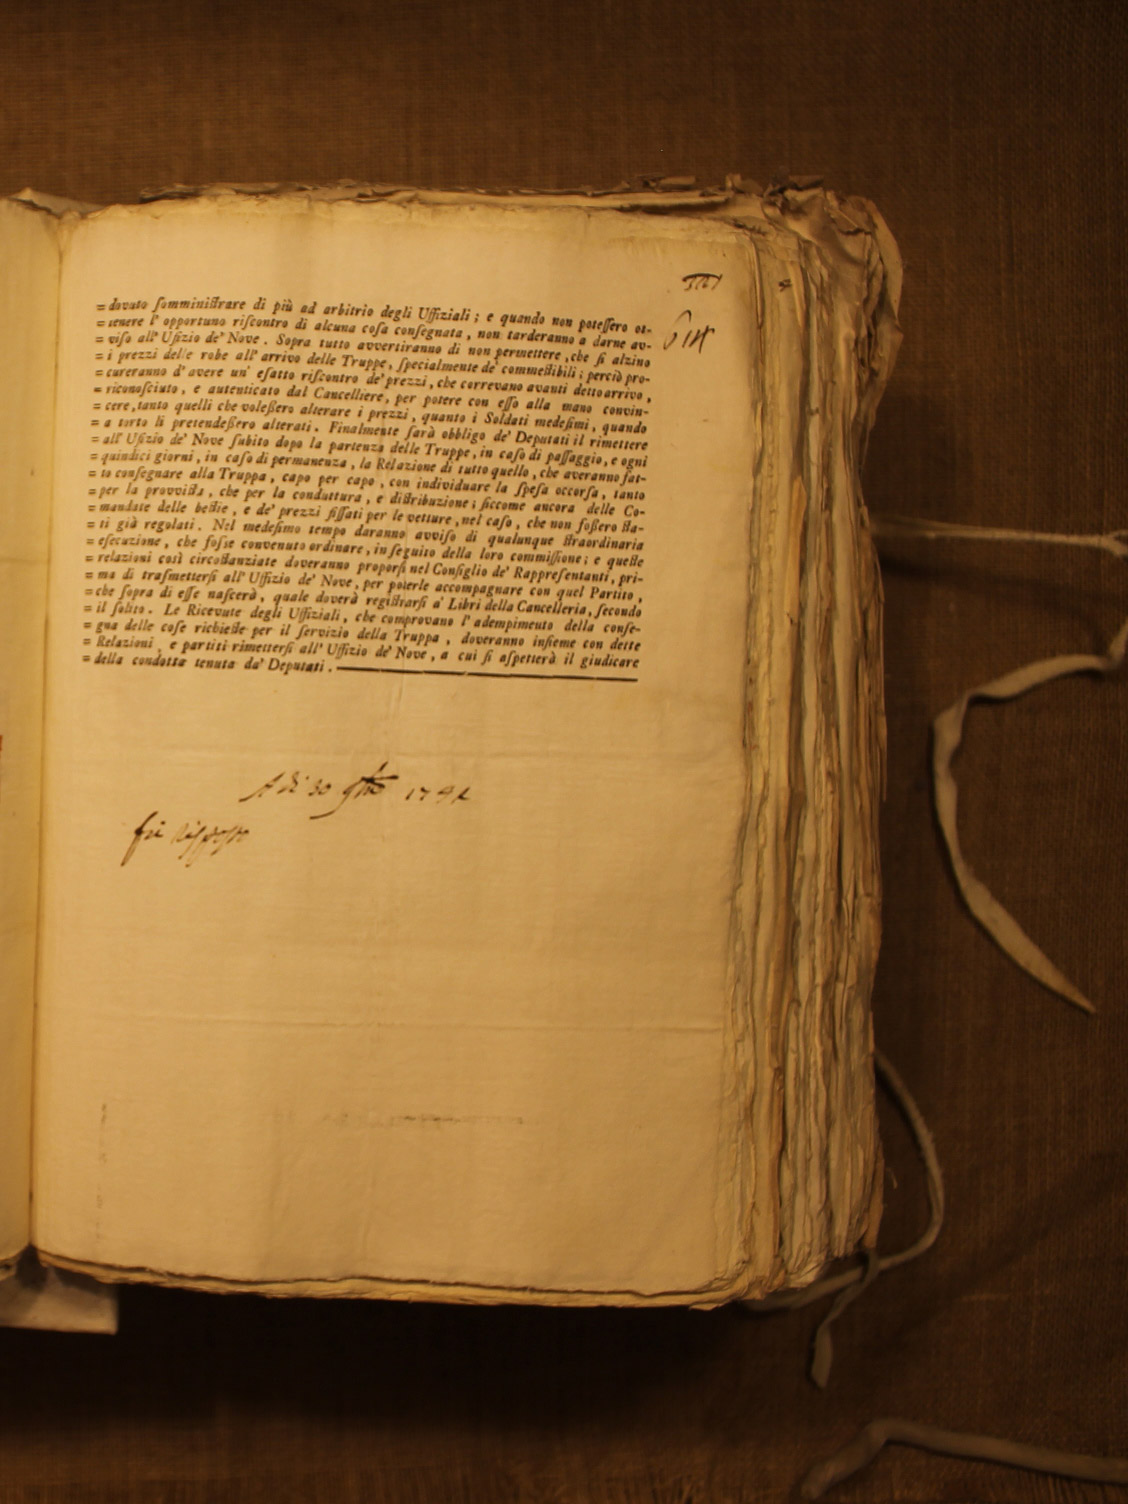 = dovuto ſomminiſtrare di più ad arbitrio degli Uffiziali ; e quando non poteſſero ot-
= tenere l' opportuno riſcontro di alcuna coſa conſegnata , non tarderanno a darne av-
= viſo all' Ufizio de' Nove . Sopra tutto avvertiranno di non permettere , che ſi alzino
= i prezzi delle robe all' arrivo delle Truppe , ſpecialmente de' commeſtibili ; perciò pro-
= cureranno d' avere un' eſatto riſcontro de' prezzi , che correvano avanti detto arrivo ,
= riconoſciuto , e autenticato dal Cancelliere , per potere con eſſo alla mano convin-
= cere , tanto quelli che voleßero alterare i prezzi , quanto i Soldati medeſimi , quando
= a torto li pretendeßero alterati . Finalmente ſarà obbligo de' Deputati il rimettere
= all' Ufizio de' Nove ſubito dopo la partenza delle Truppe , in caſo di paſſaggio , e ogni
= quindici giorni , in caſo di permanenza , la Relazione di tutto quello , che averanno fat-
= to conſegnare alla Truppa , capo per capo , con individuare la ſpeſa occorſa , tanto
= per la provviſta , che per la conduttura , e diſtribuzione ; ſiccome ancora delle Co-
= mandate delle beſtie , e de' prezzi fiſſati per le vetture , nel caſo , che non foßero ſta-
= ti già regolati . Nel medeſimo tempo daranno avviſo di qualunque ſtraordinaria
= eſecuzione , che foſſe convenuto ordinare , in ſeguito della loro commiſſione ; e queſte
= relazioni così circoſtanziate doveranno proporſi nel Conſiglio de' Rappreſentanti , pri-
= ma di traſmetterſi all' Uffizio de' Nove , per poterle accompagnare con quel Partito ,
= che ſopra di eſſe naſcerà , quale doverà regiſtrarſi a' Libri della Cancelleria , ſecondo
= il ſolito . Le Ricevute degli Uffiziali , che comprovano l' adempimento della conſe-
= gna delle coſe richieſte per il ſervizio della Truppa , doveranno inſieme con dette
= Relazioni , e partiti rimetterſi all' Uffizio de' Nove , a cui ſi aſpetterà il giudicare
= della condotta tenuta da' Deputati .
A dì 30
fù risposto